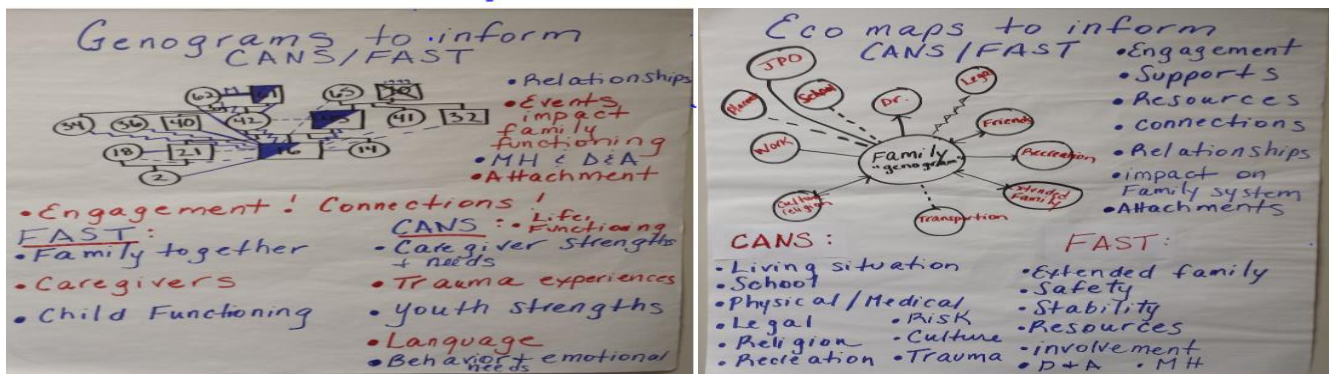 Genograms to inform
CANS/FAST
62
65
34
36
40
42
41
32
18
21
16
14
2
• Relationships
• Events,
impact
family
functioning
• MH & D&A
• Attachment
• Engagement! Connections!
FAST:
• Family together
• Caregivers
• Child Functioning
CANS: • Life,
Functioning
• Caregiver strengths
+ needs
• Trauma experiences
• Youth strengths
• Language
• Behavior + emotional
needs
Eco maps to inform
CANS/FAST
JPO
School
Dr.
Legal
Friends
Work
Family
"genogram"
Recreation
Culture
religion
Transportion
Extended
Family
• Engagement
• Supports
• Resources
• Connections
• Relationships
• impact on
Family system
• Attachments
CANS:
• Living situation
• School
• Physical/Medical
• Legal
• Religion
• Recreation
• Risk
• Culture
• Trauma
FAST:
• Extended family
• Safety
• Stability
• Resources
• involvement
• D+A • MH